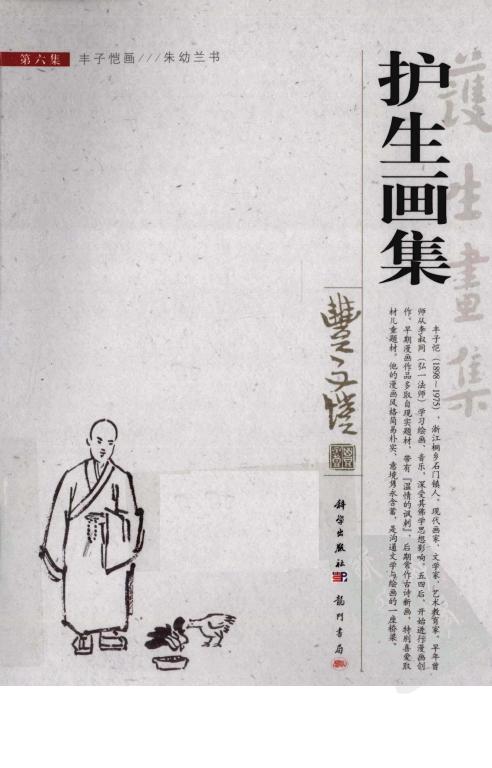 第六集 丰子恺画///朱幼兰书
护生画集
護生畫集
丰子恺（1898~1975），浙江桐乡石门镇人。现代画家、文学家、艺术教育家。早年曾
师从李叔同（弘一法师）学习绘画、音乐，深受其佛学思想影响。五四后，开始进行漫画创
作。早期漫画作品多取自现实题材，带有『温情的讽刺』，后期常作古诗新画，特别喜爱取
材儿童题材。他的漫画风格简易朴实，意境隽永含蓄，是沟通文学与绘画的一座桥梁。
豐子愷
科学出版社
龙门书局